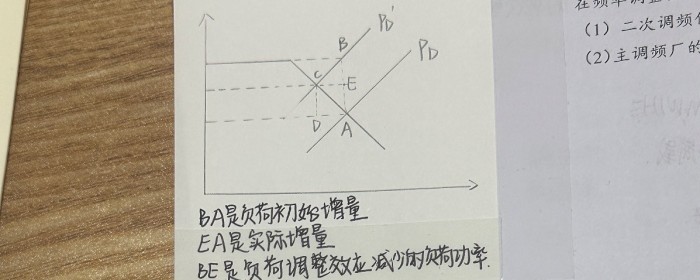 在频率调整
(1) 二次调频
PD'
B
PD
(2)主调频厂的
C
E
D
A
BA是负荷初始增量
EA是实际增量
BE是负荷调整效应减少的负荷功率.